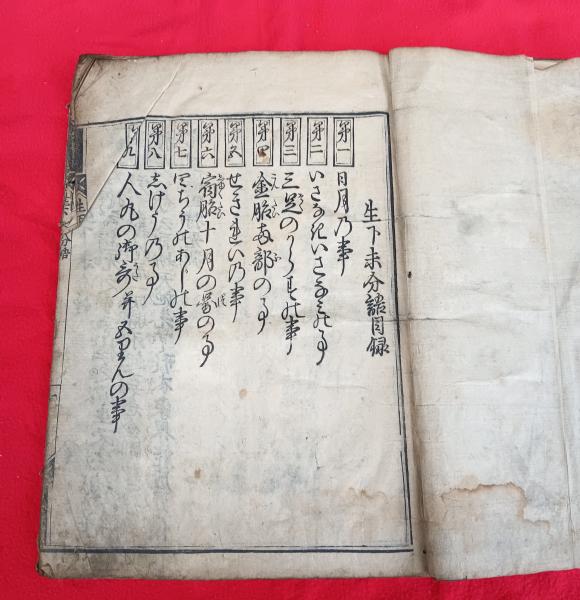 生下未分語目録
第一 日月乃事
第二 いさなきいさなみの事
第三 三足のからすの事
第四 金胎両部の事
第五 せきれい乃事
第六 宿胎十月の の事
第七 の事
第八 しけう乃事
人丸の御哥并五りんの事